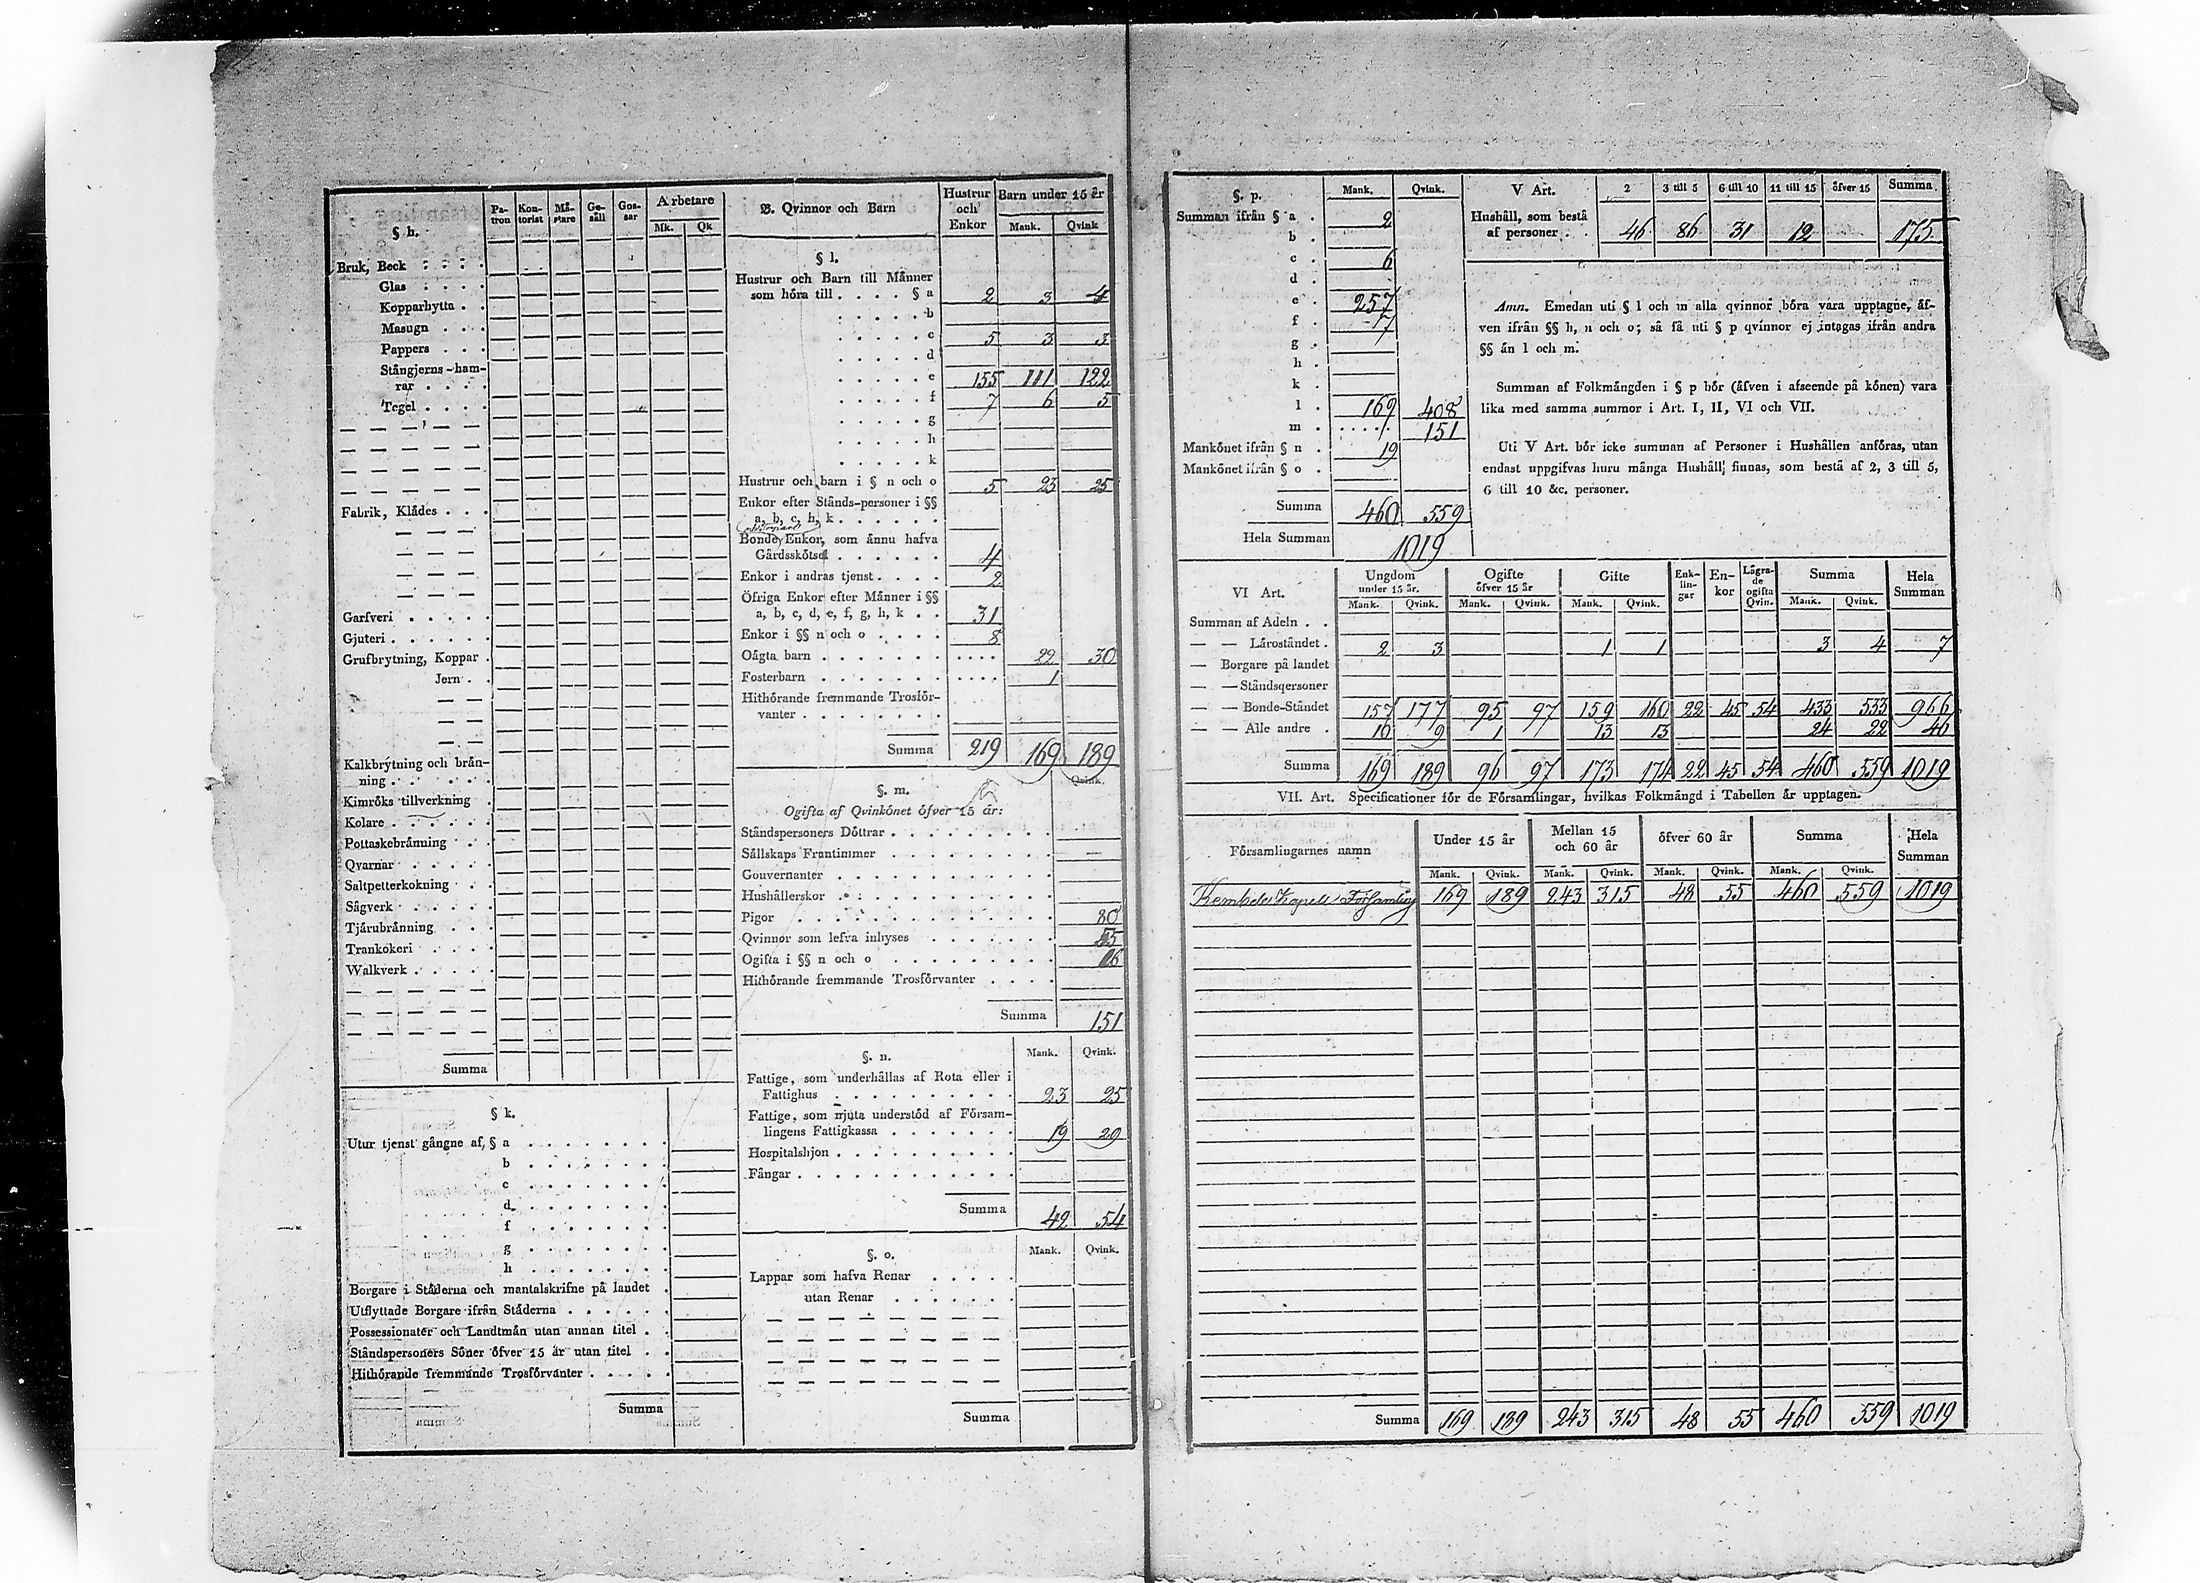 § h.
Pa-tron Kon-torist Mä-stare Ge-säll Gos-sar Arbetare
Mk. Qk
Bruk, Beck
Glas
Kopparhytta
Masugn
Pappers
Stångjerns-ham-
rar
Tegel
Fabrik, Klådes
Garfveri
Gjuteri
Grufbrytning, Koppar
Jern
Kalkbrytning och brån-
ning
Kimröks tillverkning
Kolare
Pottaskebrånning
Qvarnar
Saltpetterkokning
Sågverk
Tjårubrånning
Trankokeri
Walkverk
Summa
§ k.
Utur tjenst gångne af, § a
b
c
d
f
g
h
Borgare i Ståderna och mantalskrifne på landet
Utflyttade Borgare ifrån Ståderna
Possessionater och Landtmån utan annan titel
Ståndspersoners Söner öfver 15 år utan titel
Hithörande fremmande Trosförvanter
Summa
B. Qvinnor och Barn Hustrur och Enkor Barn under 15 år
Mank. Qvink
§ l.
Hustrur och Barn till Männer
som höra till . . . . § a 2 3 4
b
c 5 3 3
d
e 155 111 122
f 7 6 5
g
h
k
Hustrur och barn i § n och o 5 23 25
Enkor efter Stånds-personer i §§
a, b, c, h, k
Bonde Enkor, som ännu hafva
Gårdsskötsel 4
Enkor i andras tjenst 2
Öfriga Enkor efter Männer i §§
a, b, c, d, e, f, g, h, k 31
Enkor i §§ n och o 8
Oägta barn 22 30
Fosterbarn 1
Hithörande fremmande Trosför-
vanter
Summa 219 169 189
§. m. Qvink.
Ogifta af Qvinkönet öfver 15 år:
Ståndspersoners Döttrar
Sällskaps Fruntimmer
Gouvernanter
Hushållerskor
Pigor 80
Qvinnor som lefva inhyses 55
Ogifta i §§ n och o 16
Hithörande fremmande Trosförvanter
Summa 151
§. n. Mank. Qvink.
Fattige, som underhållas af Rota eller i
Fattighus 23 25
Fattige, som njuta understöd af Försam-
lingens Fattigkassa 19 29
Hospitalshjon
Fångar
Summa 42 54
§. o. Mank. Qvink.
Lappar som hafva Renar
utan Renar
Summa
§. p. Mank. Qvink.
Summan ifrån § a 2
b
c 6
d
e 257
f 7
g
h
k
l 169 408
m 151
Mankönet ifrån § n 19
Mankönet ifrån § o
Summa 460 559
Hela Summan 1019
V Art. 2 3 till 5 6 till 10 11 till 15 öfver 15 Summa
Hushåll, som bestå
af personer 46 86 31 12 175
Anm. Emedan uti § l och m alla qvinnor böra vara upptagne, äf-
ven ifrån §§ h, n och o; så få uti § p qvinnor ej intagas ifrån andra
§§ än l och m.
Summan af Folkmängden i § p bör (äfven i afseende på könen) vara
lika med samma summor i Art. I, II, VI och VII.
Uti V Art. bör icke summan af Personer i Hushållen anföras, utan
endast uppgifvas huru många Hushåll finnas, som bestå af 2, 3 till 5,
6 till 10 &c. personer.
VI Art. Ungdom under 15 år. Ogifte öfver 15 år Gifte Enk-lin-gar En-kor Lägra-de ogifta Qvin. Summa Hela Summan
Mank. Qvink. Mank. Qvink. Mank. Qvink. Mank. Qvink.
Summan af Adeln
— — Läroståndet 2 3 1 1 3 4 7
— Borgare på landet
— — Ståndspersoner
— — Bonde-Ståndet 157 177 95 97 159 160 22 45 54 433 533 966
— — Alle andre 10 9 1 13 13 24 22 46
Summa 169 189 96 97 173 174 22 45 54 460 559 1019
VII. Art. Specificationer för de Församlingar, hvilkas Folkmängd i Tabellen är upptagen.
Församlingarnes namn Under 15 år Mellan 15 och 60 år öfver 60 år Summa Hela Summan
Mank. Qvink. Mank. Qvink. Mank. Qvink. Mank. Qvink.
Kembele Kapells Församling 169 189 243 315 48 55 460 559 1019
Summa 169 189 243 315 48 55 460 559 1019